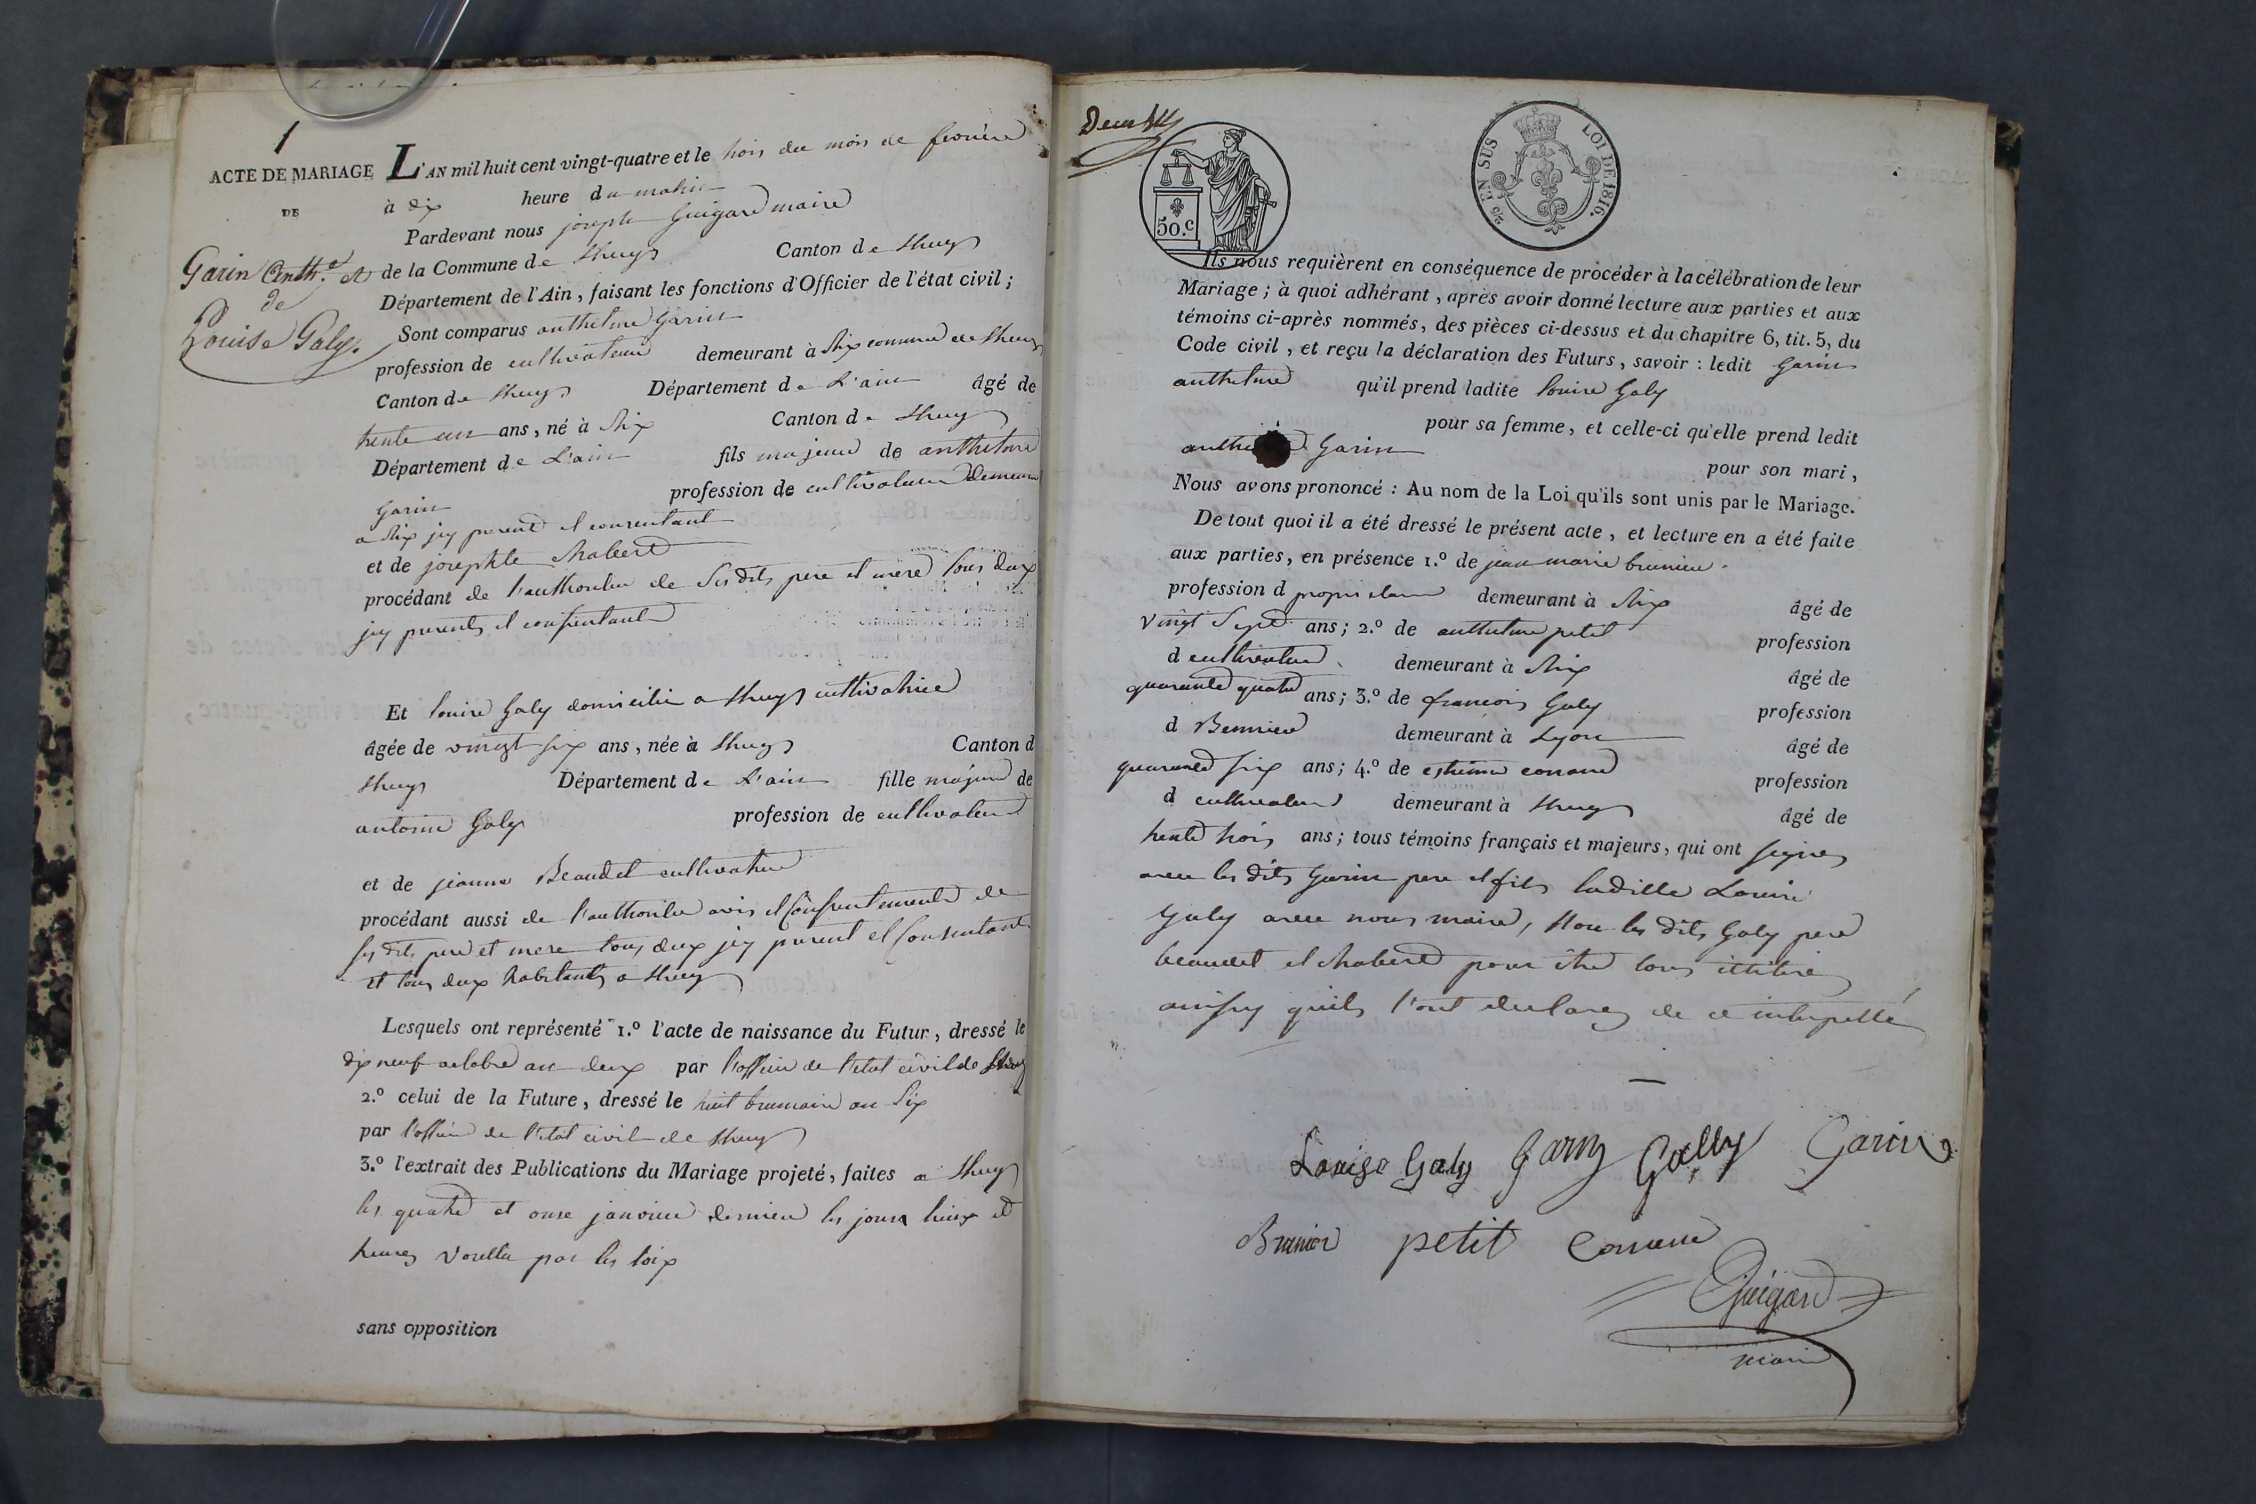 1
ACTE DE MARIAGE
DE
Garin Anth.e et
de
Louise Galy.
L'AN mil huit cent vingt-quatre et le trois du mois de fevrier
à dix heure du matin
Pardevant nous joseph Guigard maire
de la Commune de Lhuys Canton de Lhuys
Département de l'Ain, faisant les fonctions d'Officier de l'état civil;
Sont comparus anthelme Garin
profession de cultivateur demeurant à Rix commune de Lhuys
Canton de Lhuys Département de L'ain âgé de
trente un ans, né à Rix Canton de Lhuys
Département de L'ain fils majeur de anthelme
Garin profession de cultivateur demeurant
a Rix jcy present et consentant
et de josephte chabert
procédant de l'authoritee de Ses dits pere et mere tous deux
jcy presents et consentant
Et louise Galy domicilié a Lhuys cultivatrice
âgée de vingt six ans, née à Lhuys Canton d
Lhuys Département de L'ain fille majeure de
antoine Galy profession de cultivateur
et de jeanne Beaudet cultivatrice
procédant aussi de l'authoritee avis et Consentements de
ses dits pere et mere tous deux jcy present et Consentant
et tous deux habitants a Lhuys
Lesquels ont représenté 1.º l'acte de naissance du Futur, dressé le
dix neuf octobre an deux par l'officier de l'etat civil de Lhuys
2.º celui de la Future, dressé le huit brumaire an Six
par l'officier de l'etat civil de Lhuys
3.º l'extrait des Publications du Mariage projeté, faites a Lhuys
les quatre et onse janvier dernier les jours lieux et
heures voullu par les loix
sans opposition
Deux
50.c
25 EN SUS LOI DE 1816.
Ils nous requièrent en conséquence de procéder à la célébration de leur
Mariage; à quoi adhérant, après avoir donné lecture aux parties et aux
témoins ci-après nommés, des pièces ci-dessus et du chapitre 6, tit. 5, du
Code civil, et reçu la déclaration des Futurs, savoir : ledit Garin
anthelme qu'il prend ladite louise Galy
pour sa femme, et celle-ci qu'elle prend ledit
Garin pour son mari,
Nous avons prononcé : Au nom de la Loi qu'ils sont unis par le Mariage.
De tout quoi il a été dressé le présent acte, et lecture en a été faite
aux parties, en présence 1.º de jean marie brunier
profession d proprietaire demeurant à Rix âgé de
vingt Sept ans; 2.º de anthelme petit profession
d cultivateur demeurant à Rix âgé de
quarante quatre ans; 3.º de francois Galy profession
d demeurant à Lyon âgé de
quarante six ans; 4.º de etienne conand profession
d cultivateur demeurant à Lhuys âgé de
trente trois ans; tous témoins français et majeurs, qui ont signes
avec les dits Garin pere et fils ladite Louise
Galy avec nous maire, non les dits Galy pere
beaudet et chabert pour être tous illitire
ainsy quils l'ont declares de ce interpellé
Louise Galy Garin Gally Garin
Brunier petit Conand
Guigard
maire